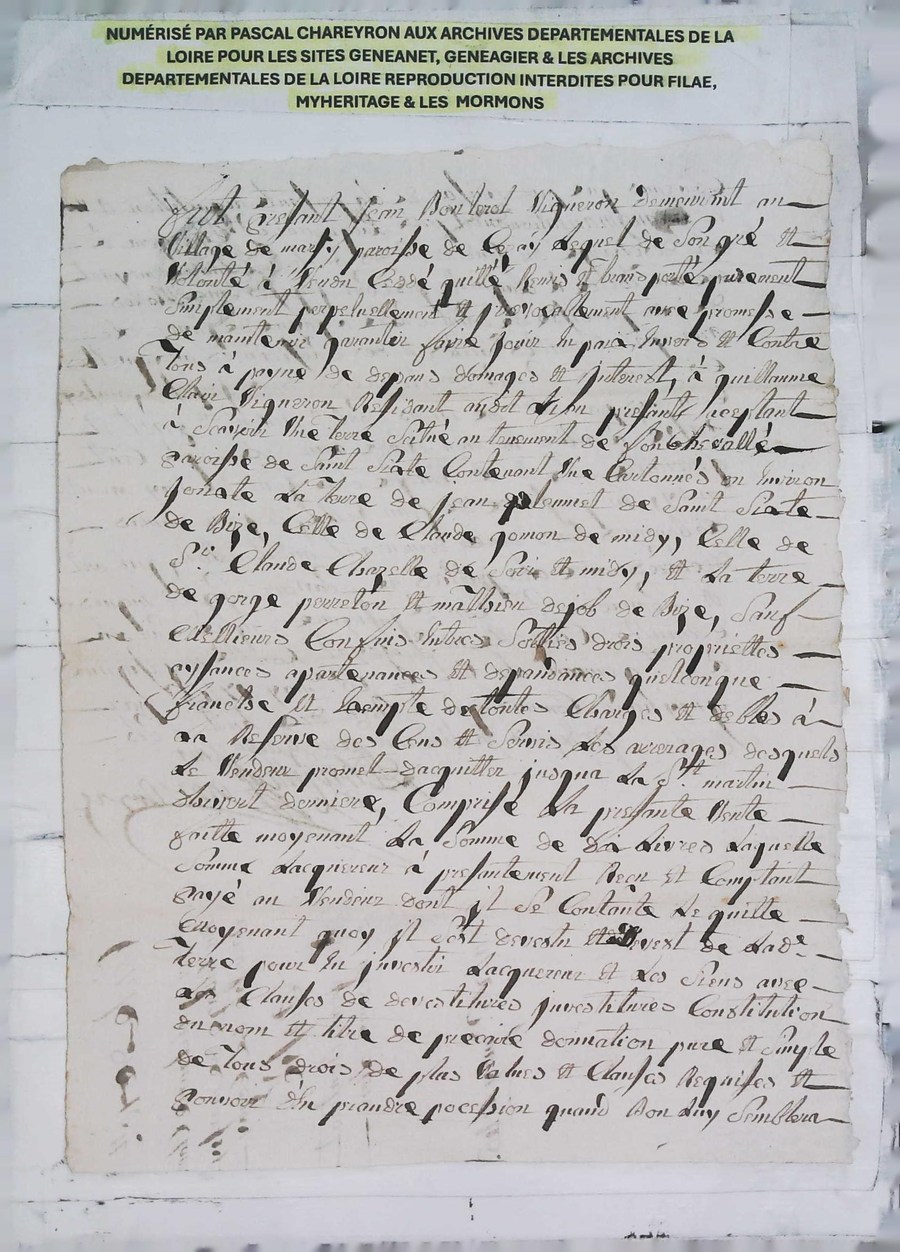 NUMÉRISÉ PAR PASCAL CHAREYRON AUX ARCHIVES DEPARTEMENTALES DE LA
LOIRE POUR LES SITES GENEANET, GENEAGIER & LES ARCHIVES
DEPARTEMENTALES DE LA LOIRE REPRODUCTION INTERDITES POUR FILAE,
MYHERITAGE & LES MORMONS
fut presant jean Vigneron demeurant au
Village de marsy paroisse de Lequel de Son gré Et
Volonté à Vendu Ceddé quitté Remis Et transporté purement
Simplement perpetuellement Et jrrevocablement avec promesse
de maintenir garantir faire jouir En paix Envers Et Contre
Tous à payne de depans domages Et jnterest, à guillaume
Clair Vigneron Residant audit presant acceptant
à Scavoir Une Terre Scitué au tenement de
paroisse de Saint Contenant Une Cartonnés ou Environ
joriote La Terre de jean de Saint
de Bize, Celle de Claude gonon de midy, Celle de
Sr. Claude Chazelle de Soir Et midy, Et La terre
de gorge perreton Et mathieu dejob de Bize, Sauf
Meillieurs Confins Entres Sorties drois propriettes
aysances apartenances Et depandances quelconque
franche Et Exempte de toutes Charges Et debtes à
La Reserve des Cens Et Servis Les arrerages desquels
Le Vendeur promet dacquitter jusqua La St. martin
dhivert derniere, Comprise La presante Vente
faitte moyenant La Somme de Livres Laquelle
Somme Lacquereur à presantement Reçu Et Comptant
payé au Vendeur dont jl Se Contante Le quitte
moyenant quoy jl Sest devestu de Lade
Terre pour En jnvestir Lacquereur Et Les Siens avec
Les Clauses de devestitures jnvestitures Constitution
du nom Et titre de precaire donnation pure Et Simple
de Tous drois de plus Values Et Clauses Requises Et
pouvoir dEn prandre pocession quand Bon Luy Semblera